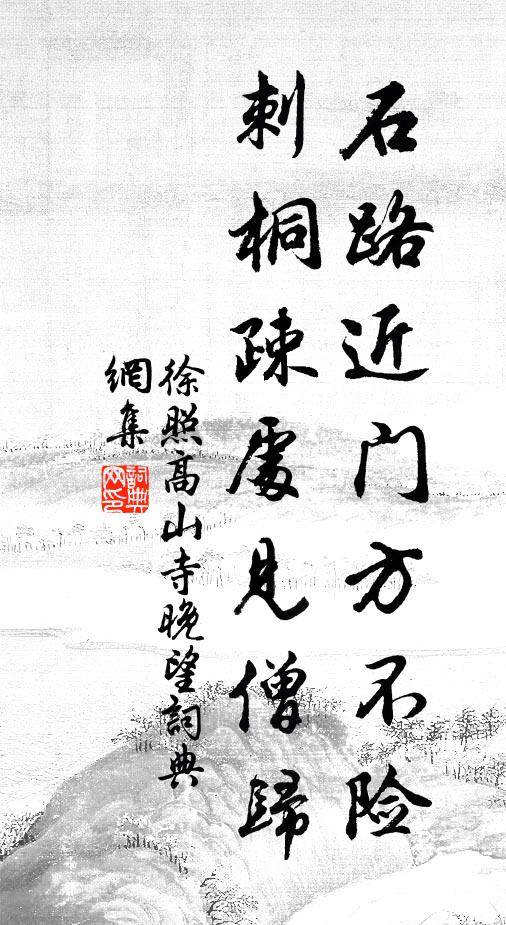 石路近门方不险
刺桐疎處見僧歸
徐照高山寺晚望詞典
網集
詞典
网印